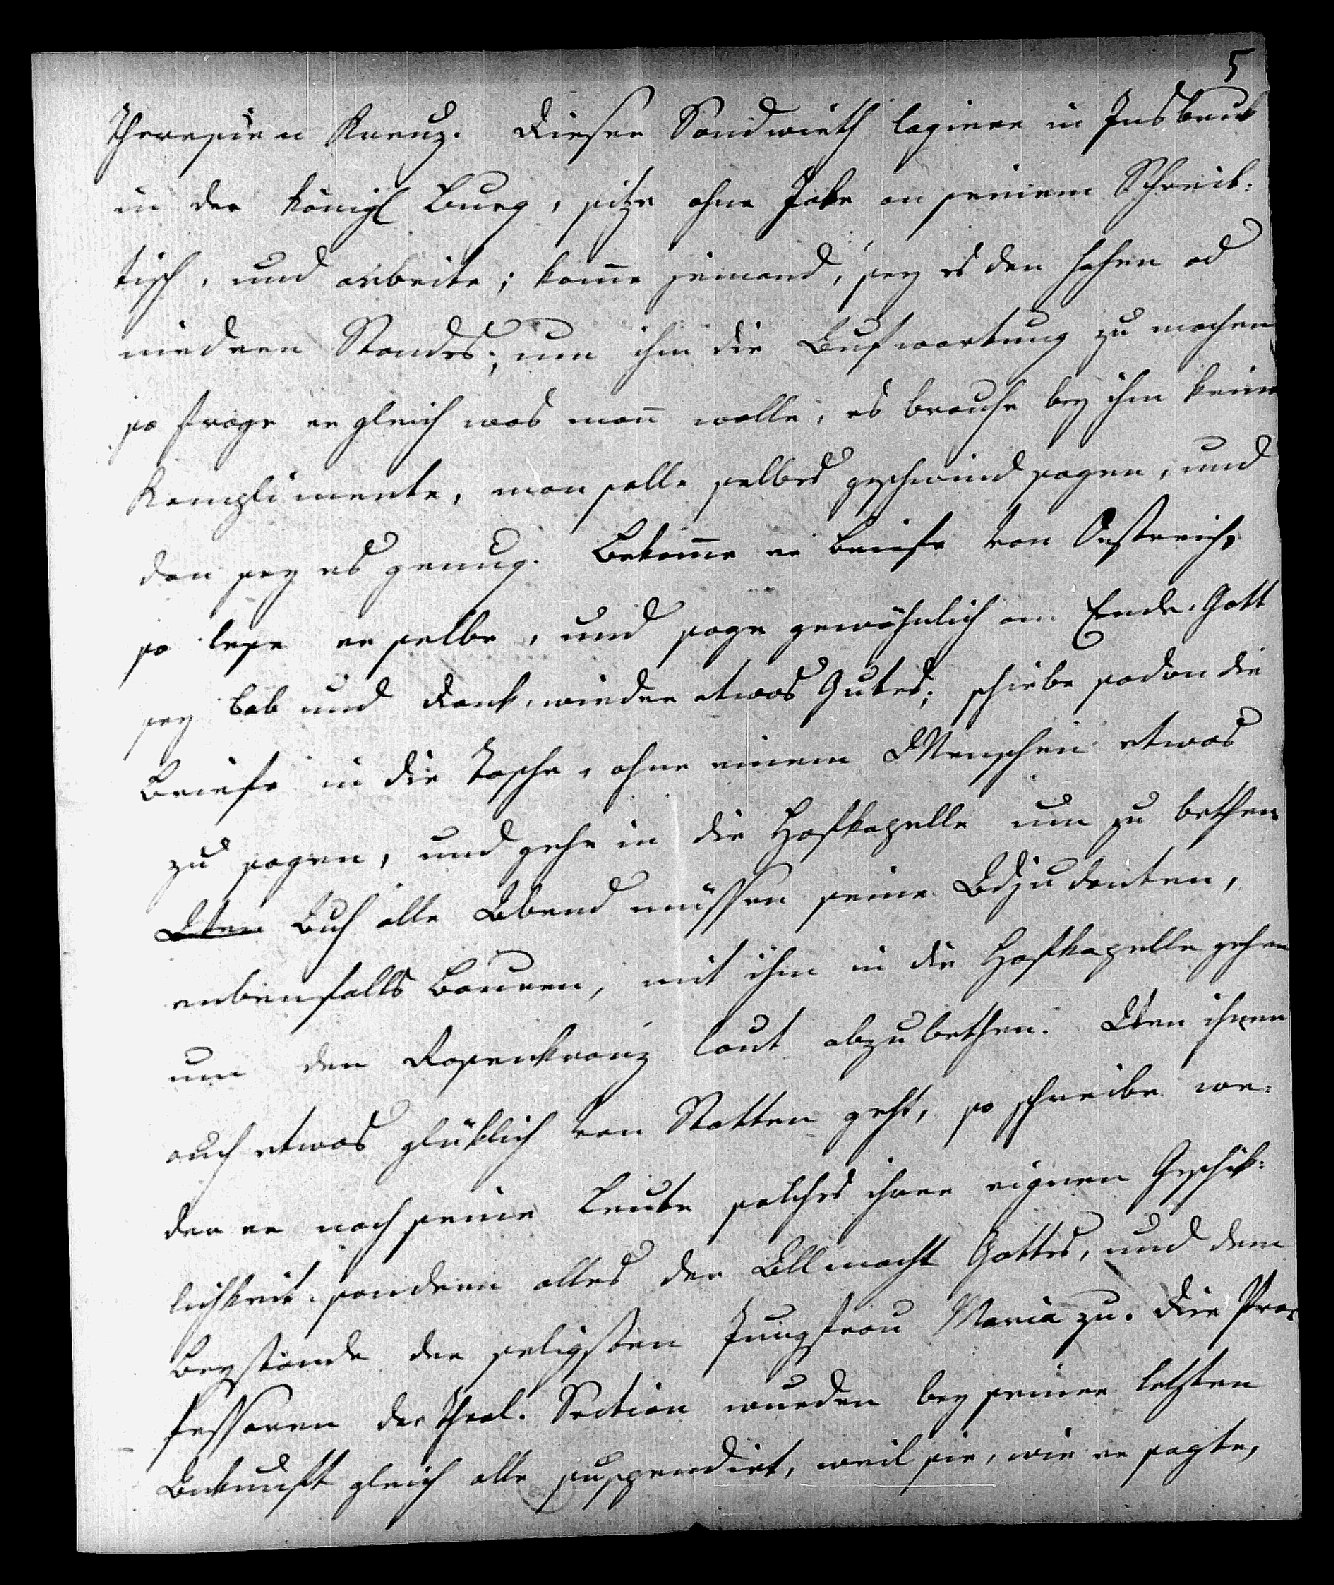 5
Theresien Kreuz. Dieser Sandwirth logiere in Insbruk
in der königl Burg, sitze ohne Joke an seinem Schreib-
tisch, und arbeite; kom̅e jemand, sey es den hohen od
niedern Standes; um ihm die Aufwartung zu machen
so frage er gleich was man̅ wolle, es brauche bey ihm keine
Komplimente, man solle selbes geschwind sagen, und
dan sey es genug. Bekom̅e er Briefe von Oestreich,
so lese er selbe, und sage gewöhnlich am Ende. Gott
sey Lob und Dank, wieder etwas Gutes; schiebe sodan die
Briefe in die Tasche, ohne einem Menschen etwas
zu sagen, und gehe in die Hofkapelle um zu bethen
Auch alle Abend müssen seine Adjudanten,
ebenfalls Bauern, mit ihm in die Hofkapelle gehen
um den Rosenkranz laut abzubethen. Wen ihnen
auch etwas glüklich von Statten geht, so schreibe we-
der er noch seine Leute solches ihrer eignen Geschik-
lichkeit, sondern alles der Allmacht Gottes, und dem
Beystande der seligsten Jungfrau Maria zu. Die Pro-
fessoren der Theol. Section wurden bey seiner letzten
Ankunft gleich alle suspendirt, weil sie, wie er sagte,